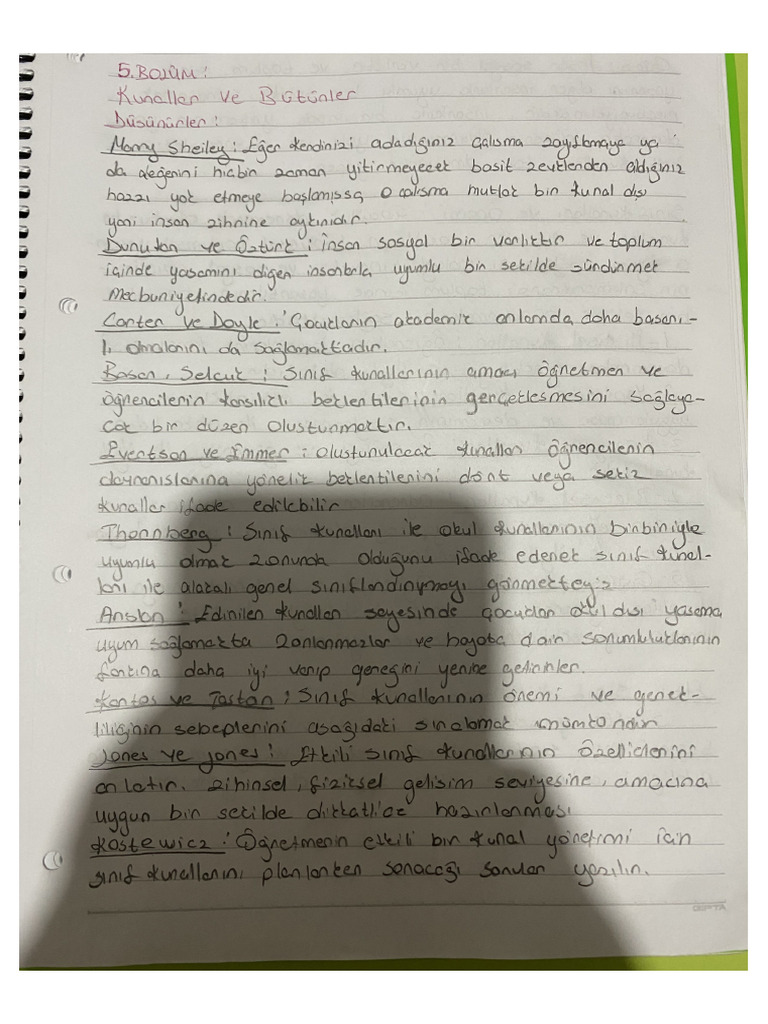 5.BÖLÜM:
Kurallar ve Bütünler
Düşünürler:
Marry Sheiley: Eğer kendinizi adadığınız çalışma zayıflamaya ya
da değerini hiçbir zaman yitirmeyecek basit zevklerden aldığınız
hazzı yok etmeye başlamışsa, o çalışma mutlak bir kural dışı
yani insan zihnine aykırıdır.
Durukan ve Öztürk: İnsan sosyal bir varlıktır ve toplum
içinde yaşamını diğer insanlarla uyumlu bir şekilde sürdürmek
Mecburiyetindedir.
Carter ve Doyle: Çocukların akademik anlamda daha başarı-
lı olmalarını da sağlamaktadır.
Başar, Selçuk: Sınıf kurallarının amacı öğretmen ve
öğrencilerin karşılıklı beklentilerinin gerçekleşmesini sağlaya-
cak bir düzen oluşturmaktır.
Evertson ve Emmer: Oluşturulacak kurallar öğrencilerin
davranışlarına yönelik beklentilerini dört veya sekiz
kurallar ifade edilebilir
Thornberg: Sınıf kuralları ile okul kurallarının birbiriyle
uyumlu olmak zorunda olduğunu ifade ederek sınıf kural-
ları ile alakalı genel sınıflandırmayı görmekteyiz
Arslan: Edinilen kurallar sayesinde çocuklar okul dışı yaşama
uyum sağlamakta zorlanmazlar ve hayata dair sorumluluklarının
farkına daha iyi varıp gereğini yerine getirirler.
Kontas ve Tastan: Sınıf kurallarının önemi ve gerek-
liliğinin sebeplerini aşağıdaki sıralamak mümkündür
Jones ve Jones: Etkili sınıf kurallarının özelliklerini
anlatır. Zihinsel, fiziksel gelişim seviyesine, amacına
uygun bir şekilde dikkatlice hazırlanması
Kostewicz: Öğretmenin etkili bir kural yönetimi için
sınıf kurallarını planlarken soracağı sorular yazılır.